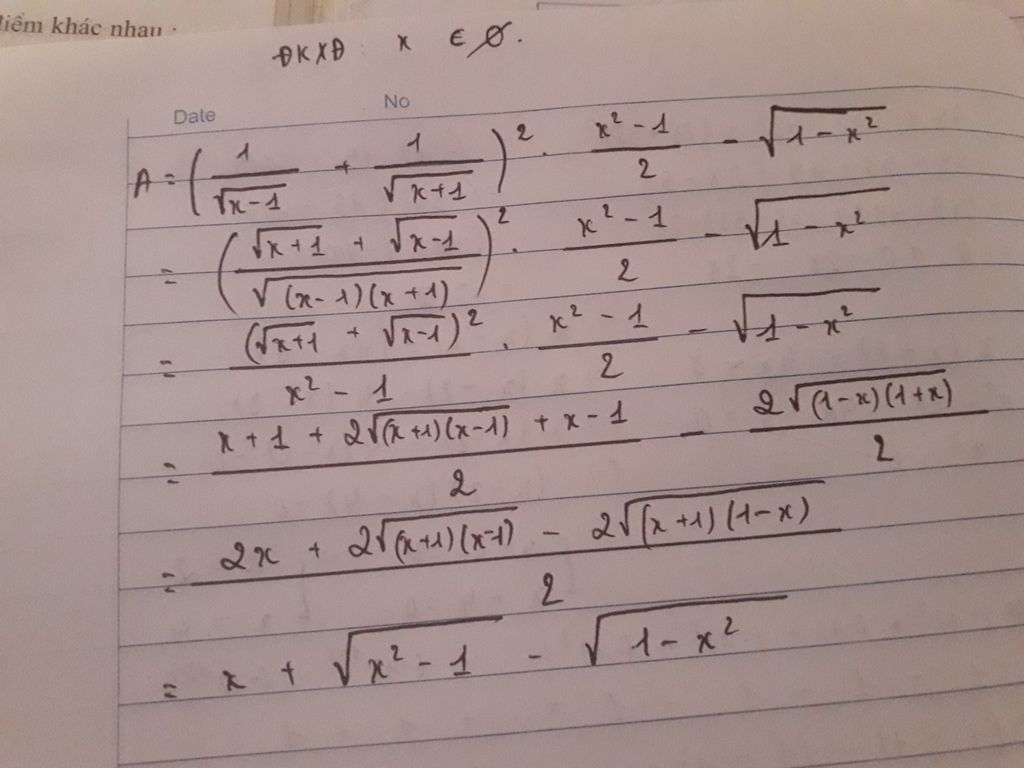 điểm khác nhau :
ĐKXĐ : x ∈ ∅.
Date No
A = (1/√(x-1) + 1/√(x+1))² · (x² - 1)/2 - √(1 - x²)
= ((√(x+1) + √(x-1))/√((x-1)(x+1)))² · (x² - 1)/2 - √(1 - x²)
= (√(x+1) + √(x-1))²/(x² - 1) · (x² - 1)/2 - √(1 - x²)
= (x + 1 + 2√((x+1)(x-1)) + x - 1)/2 - 2√((1-x)(1+x))/2
= (2x + 2√((x+1)(x-1)) - 2√((x+1)(1-x)))/2
= x + √(x² - 1) - √(1 - x²)